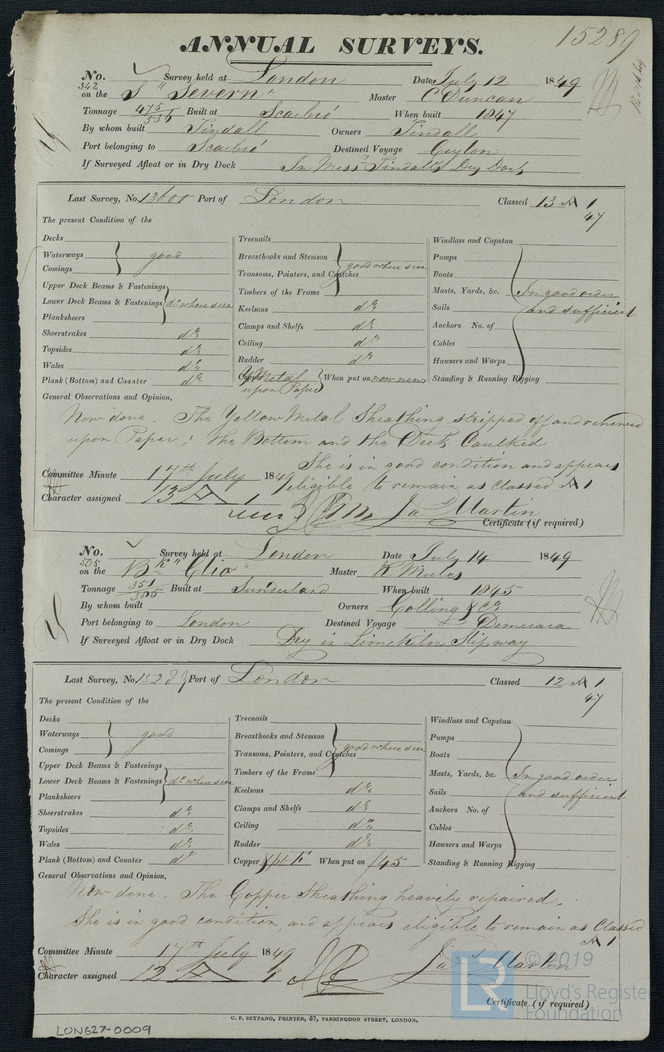 15289
ANNUAL SURVEYS.
No. Survey held at London Date July 12 1849
342
on the S "Severn" Master C Duncan
Tonnage 475/556 Built at Scarbro' When built 1847
By whom built Tindall Owners Tindall
Port belonging to Scarbro' Destined Voyage Ceylon
If Surveyed Afloat or in Dry Dock In Mess.rs Tindall's Dry Dock
Last Survey, No. 13600 Port of London Classed 13 A 1
47
The present Condition of the
Decks Treenails Windlass and Capstan
Waterways good Breasthooks and Stemson good where seen Pumps
Comings Transoms, Pointers, and Crutches Boats
Upper Deck Beams & Fastenings Timbers of the Frame Masts, Yards, &c. In good order
Lower Deck Beams & Fastenings do where seen Keelsons do Sails and sufficient
Planksheers Clamps and Shelfs do Anchors No. of
Sheerstrakes do Ceiling do Cables
Topsides do Rudder do Hawsers and Warps
Wales do Y Metal upon Paper When put on now new Standing & Running Rigging
Plank (Bottom) and Counter do
General Observations and Opinion,
Now done. The Yellow Metal Sheathing stripped off and renewed
upon Paper; the Bottom and the Deck Caulked
She is in good condition and appears
Committee Minute 17th July 1849 eligible to remain as classed A 1
Character assigned 13 A 1 Ja.s Martin
Certificate (if required)
No. Survey held at London Date July 14 1849
505
on the Bk "Clio" Master
Tonnage 351 Built at Sunderland When built 1845
By whom built Owners Colling & Co
Port belonging to London Destined Voyage Demerara
If Surveyed Afloat or in Dry Dock Dry in Limekiln Slipway
Last Survey, No. 13289 Port of London Classed 12 A 1
47
The present Condition of the
Decks Treenails Windlass and Capstan
Waterways good Breasthooks and Stemson good where seen Pumps
Comings Transoms, Pointers, and Crutches Boats
Upper Deck Beams & Fastenings Timbers of the Frame Masts, Yards, &c. In good order
Lower Deck Beams & Fastenings do where seen Keelsons do Sails and sufficient
Planksheers Clamps and Shelfs do Anchors No. of
Sheerstrakes do Ceiling do Cables
Topsides do Rudder do Hawsers and Warps
Wales do Copper When put on /45 Standing & Running Rigging
Plank (Bottom) and Counter do
General Observations and Opinion,
Now done. The Copper Sheathing heavily repaired.
She is in good condition, and appears eligible to remain as Classed
A 1
Committee Minute 17th July 1849
Character assigned 12 A 1 Ja.s Martin
Certificate (if required)
C. F. SEYFANG, PRINTER, 57, FARRINGDON STREET, LONDON.
LON627-0009
© 2019
Lloyd's Register
Foundation